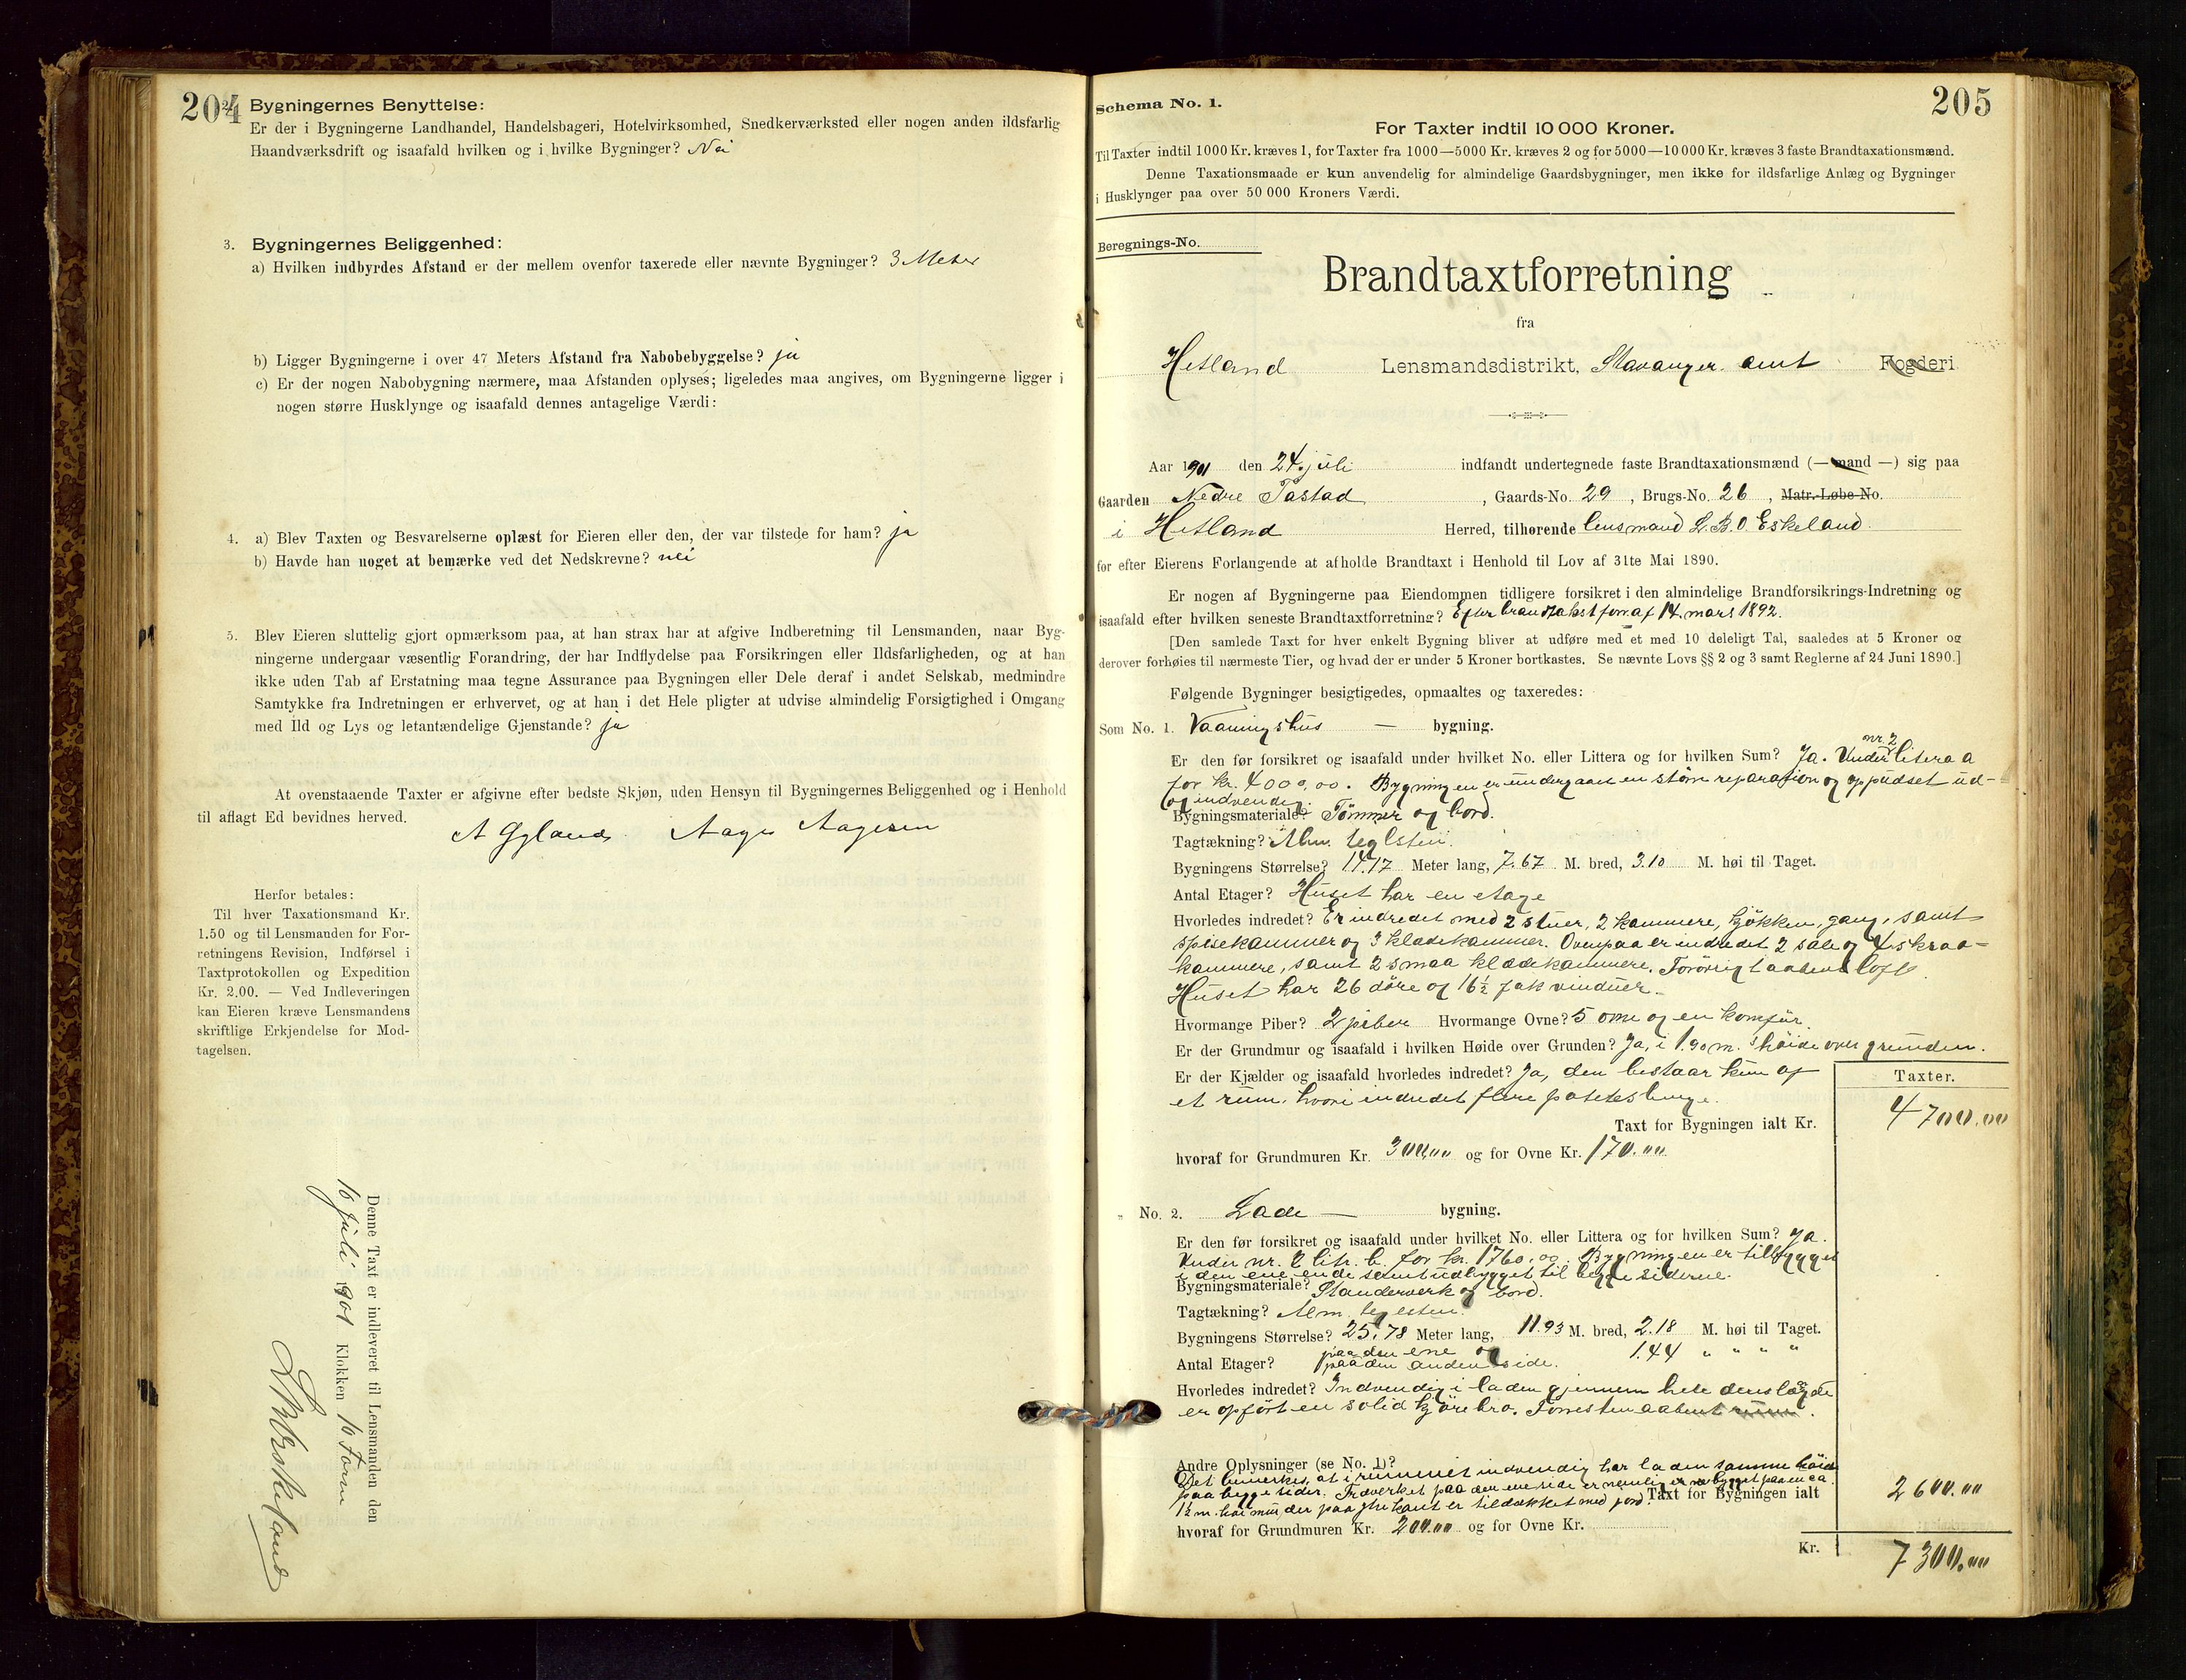 204
Bygningernes Benyttelse:
Er der i Bygningerne Landhandel, Handelsbageri, Hotelvirksomhed, Snedkerværksted eller nogen anden ildsfarlig
Haandværksdrift og isaafald hvilken og i hvilke Bygninger? Nei
3. Bygningernes Beliggenhed:
a) Hvilken indbyrdes Afstand er der mellem ovenfor taxerede eller nævnte Bygninger? 3 Meter
b) Ligger Bygningerne i over 47 Meters Afstand fra Nabobebyggelse? ja
c) Er der nogen Nabobygning nærmere, maa Afstanden oplyses; ligeledes maa angives, om Bygningerne ligger i
nogen større Husklynge og isaafald dennes antagelige Værdi:
4. a) Blev Taxten og Besvarelserne oplæst for Eieren eller den, der var tilstede for ham? ja
b) Havde han noget at bemærke ved det Nedskrevne? nei
5. Blev Eieren sluttelig gjort opmærksom paa, at han strax har at afgive Indberetning til Lensmanden, naar Byg-
ningerne undergaar væsentlig Forandring, der har Indflydelse paa Forsikringen eller Ildsfarligheden, og at han
ikke uden Tab af Erstatning maa tegne Assurance paa Bygningen eller Dele deraf i andet Selskab, medmindre
Samtykke fra Indretningen er erhvervet, og at han i det Hele pligter at udvise almindelig Forsigtighed i Omgang
med Ild og Lys og letantændelige Gjenstande? ja
At ovenstaaende Taxter er afgivne efter bedste Skjøn, uden Hensyn til Bygningernes Beliggenhed og i Henhold
til aflagt Ed bevidnes herved.
A Gyland Aage Aagesen
Herfor betales:
Til hver Taxationsmand Kr.
1.50 og til Lensmanden for For-
retningens Revision, Indførsel i
Taxtprotokollen og Expedition
Kr. 2.00. — Ved Indleveringen
kan Eieren kræve Lensmandens
skriftlige Erkjendelse for Mod-
tagelsen.
Denne Taxt er indleveret til Lensmanden den
16 juli 1901 Klokken 10 Form
205
Schema No. 1.
For Taxter indtil 10 000 Kroner.
Til Taxter indtil 1000 Kr. kræves 1, for Taxter fra 1000—5000 Kr. kræves 2 og for 5000—10 000 Kr. kræves 3 faste Brandtaxationsmænd.
Denne Taxationsmaade er kun anvendelig for almindelige Gaardsbygninger, men ikke for ildsfarlige Anlæg og Bygninger
i Husklynger paa over 50 000 Kroners Værdi.
Beregnings-No.
Brandtaxtforretning
fra
Hetland Lensmandsdistrikt, Stavanger amt Fogderi
Aar 1901 den 24. juli indfandt undertegnede faste Brandtaxationsmænd (— mand —) sig paa
Gaarden Nedre Tastad, Gaards-No. 29, Brugs-No. 26, Matr.-Løbe-No.
i Hetland Herred, tilhørende lensmand L. B. O. Eskeland
for efter Eierens Forlangende at afholde Brandtaxt i Henhold til Lov af 31te Mai 1890.
Er nogen af Bygningerne paa Eiendommen tidligere forsikret i den almindelige Brandforsikrings-Indretning og
isaafald efter hvilken seneste Brandtaxtforretning? Efter brandtakstforr. af 14. mars 1892.
[Den samlede Taxt for hver enkelt Bygning bliver at udføre med et med 10 deleligt Tal, saaledes at 5 Kroner og
derover forhøies til nærmeste Tier, og hvad der er under 5 Kroner bortkastes. Se nævnte Lovs §§ 2 og 3 samt Reglerne af 24 Juni 1890.]
Følgende Bygninger besigtigedes, opmaaltes og taxeredes:
Som No. 1. Vaaningshus — bygning.
Er den før forsikret og isaafald under hvilket No. eller Littera og for hvilken Sum? Ja. Under nr. 2 litera a
for kr. 4000,00. Bygningen er undergaaet en større reparation og oppudset ud-
og indvendig.
Bygningsmateriale? Tømmer og bord.
Tagtækning? Alm. teglsten.
Bygningens Størrelse? 14.17 Meter lang, 7.67 M. bred, 3.10 M. høi til Taget.
Antal Etager? Huset har en etage
Hvorledes indredet? Er indredet med 2 stuer, 2 kammere, kjøkken, gang, samt
spisekammer og 3 klædekammer. Ovenpaa er indredet 2 sale og 4 skraa-
kammere, samt 2 smaa klædekammere. Forøvrigt aabent loft.
Huset har 26 døre og 16½ fak vinduer.
Hvormange Piber? 2 piber Hvormange Ovne? 5 ovne og en komfür.
Er der Grundmur og isaafald i hvilken Høide over Grunden? Ja, i 1.90 m. høide over grunden.
Er der Kjælder og isaafald hvorledes indredet? Ja, den bestaar kun af
et rum, hvori indredet flere potetsbinge.
Taxter.
Taxt for Bygningen ialt Kr. 4700.00
hvoraf for Grundmuren Kr. 300.00 og for Ovne Kr. 170.00
" No. 2. Lade — bygning.
Er den før forsikret og isaafald under hvilket No. eller Littera og for hvilken Sum? Ja.
Under nr. 2 litr. b. for kr. 1760,00. Bygningen er tilbygget
i den ene ende samt udbygget til begge siderne.
Bygningsmateriale? Standerverk og bord.
Tagtækning? Alm. teglsten.
Bygningens Størrelse? 25,78 Meter lang, 11.93 M. bred, 2.18 M. høi til Taget.
paa den ene og 1.44 " " " "
Antal Etager? paa den anden side.
Hvorledes indredet? Indvendig i laden gjennem hele dens længde
er opført en solid kjørebro. Forresten aabent rum.
Andre Oplysninger (se No. 1)?
Det bemerkes, at i rummet indvendig har laden samme høide
paa begge sider. Træverket paa den ene side er nemlig bygget paa en ca.
1½ m. høi mur, der paa ydre kant er tildækket med jord. Taxt for Bygningen ialt 2600.00
hvoraf for Grundmuren Kr. 200.00 og for Ovne Kr.
Kr. 7300.00